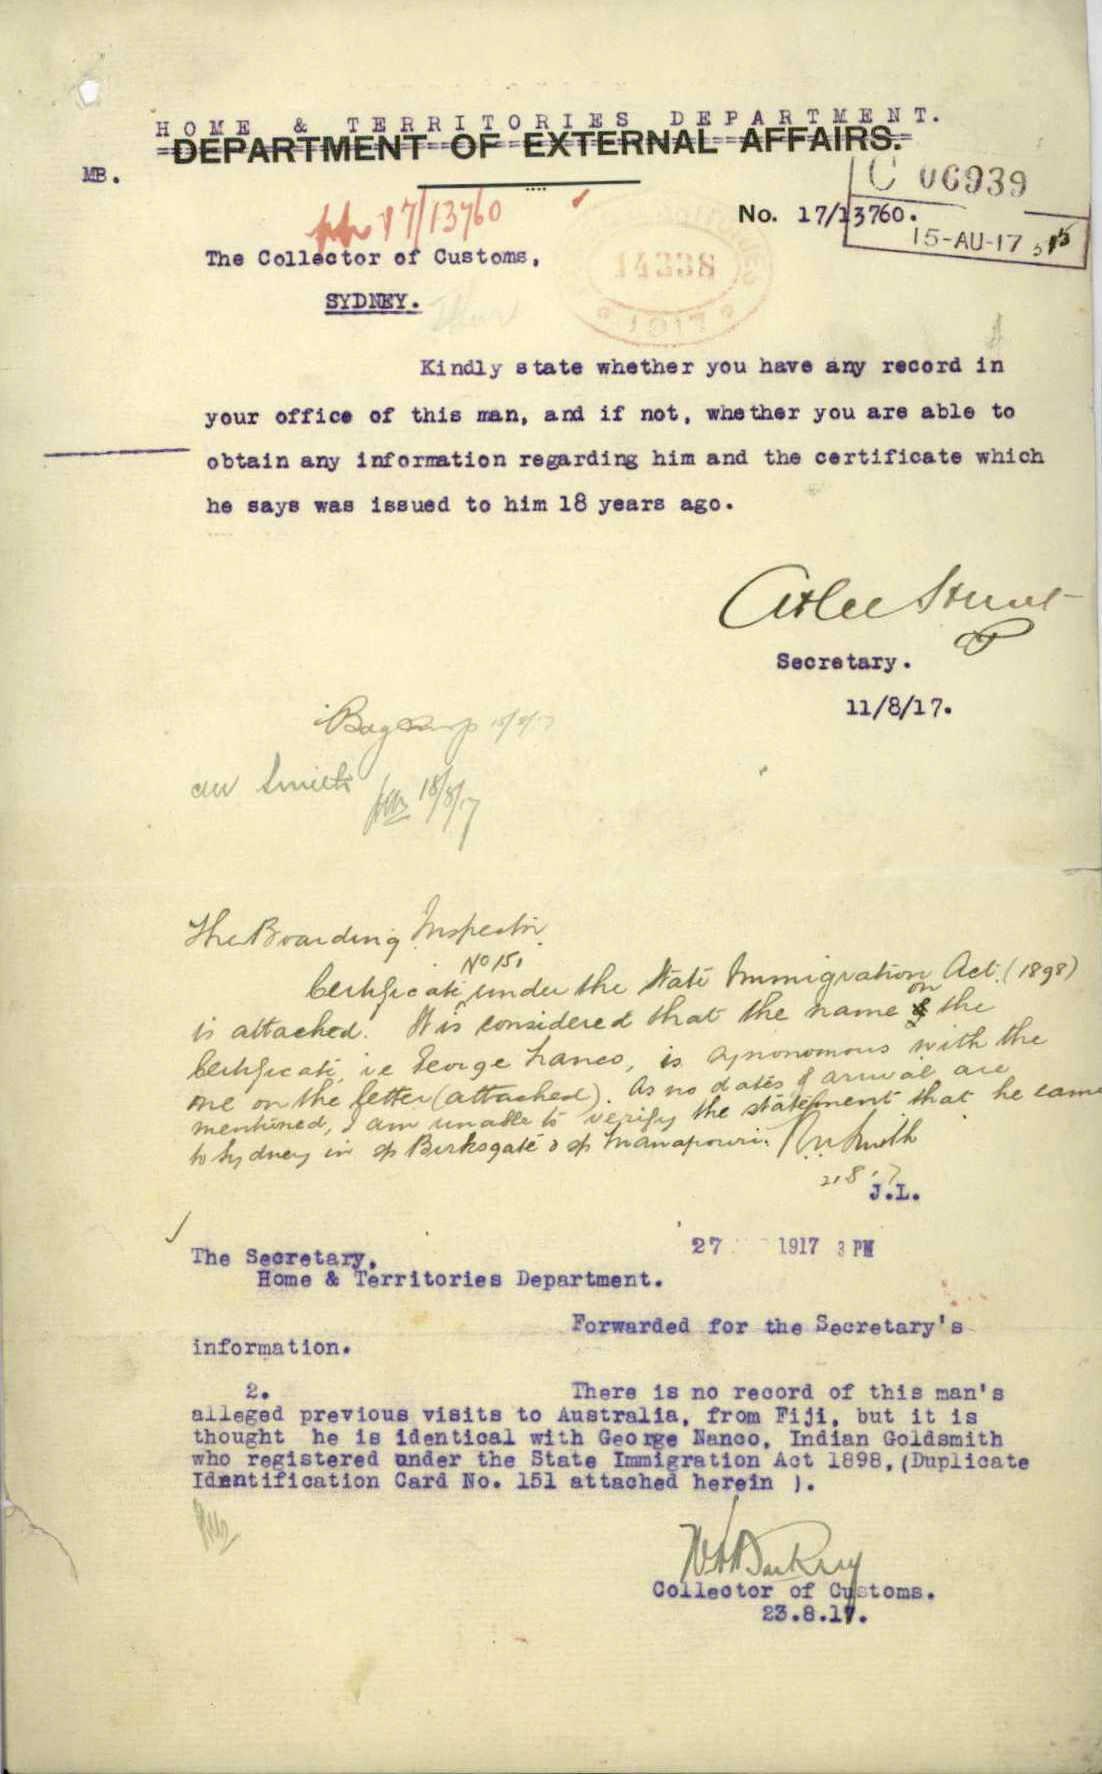 HOME & TERRITORIES DEPARTMENT.
DEPARTMENT OF EXTERNAL AFFAIRS.
MB.
C 06939
17/13760
No. 17/13760.
15-AU-17
The Collector of Customs,
14338
SYDNEY.
1917
Kindly state whether you have any record in
your office of this man, and if not, whether you are able to
obtain any information regarding him and the certificate which
he says was issued to him 18 years ago.
Atlee Hunt
Secretary.
11/8/17.
Smith
18/8/17
The Boarding Inspector.
No 151
Certificate under the State Immigration Act (1898)
is attached. It is considered that the name on the
Certificate, i.e George Nanco, is synonomous with the
one on the letter (attached). As no dates of arrival are
mentioned, I am unable to verify the statement that he came
to Sydney in ss Birksgate & ss Manapouri. Smith
21.8.17
J.L.
27 1917 3 PM
The Secretary,
Home & Territories Department.
Forwarded for the Secretary's
information.
2. There is no record of this man's
alleged previous visits to Australia, from Fiji, but it is
thought he is identical with George Nanco, Indian Goldsmith
who registered under the State Immigration Act 1898,(Duplicate
Identification Card No. 151 attached herein ).
Collector of Customs.
23.8.17.